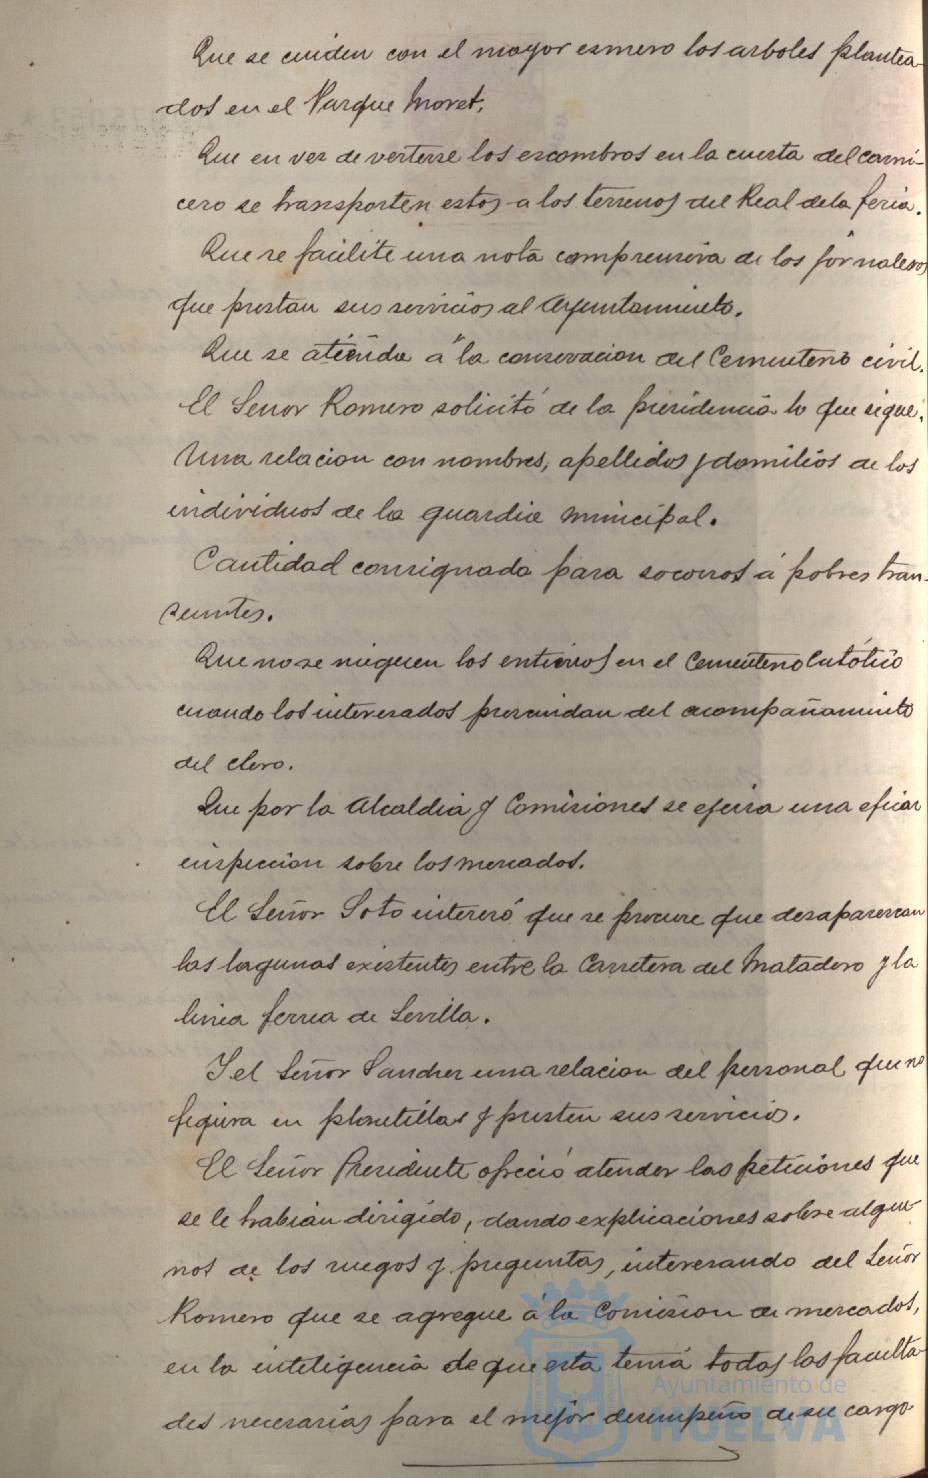 Que se cuiden con el mayor esmero los arboles plantea-
dos en el Parque Moret.
Que en vez de verterse los escombros en la cuesta del carni-
cero se transporten estos a los terrenos del Real de la feria.
Que se facilite una nota comprensiva de los jornaleros
que prestan sus servicios al Ayuntamiento.
Que se atienda á la conservacion del Cementerio civil.
El Señor Romero solicitó de la presidencia lo que sigue.
Una relacion con nombres, apellidos y domilios de los
individuos de la guardia municipal.
Cantidad consignada para socorros á pobres tran-
seuntes.
Que no se nieguen los entierros en el Cementerio Católico
cuando los interesados prescindan del acompañamiento
del clero.
Que por la Alcaldia y Comisiones se ejerza una eficaz
inspeccion sobre los mercados.
El Señor Soto interesó que se procure que desaparezcan
las lagunas existentes entre la Carretera del Matadero y la
linea ferrea de Sevilla.
Y el Señor Sanchez una relacion del personal que no
figura en plantillas y presten sus servicios.
El Señor Presidente ofreció atender las peticiones que
se le habian dirigido, dando explicaciones sobre algu-
nos de los ruegos y preguntas, interesando del Señor
Romero que se agregue á la Comision de mercados,
en la inteligencia de que esta tenia todas las faculta-
des necesarias para el mejor desempeño de su cargo.
Ayuntamiento de
HUELVA